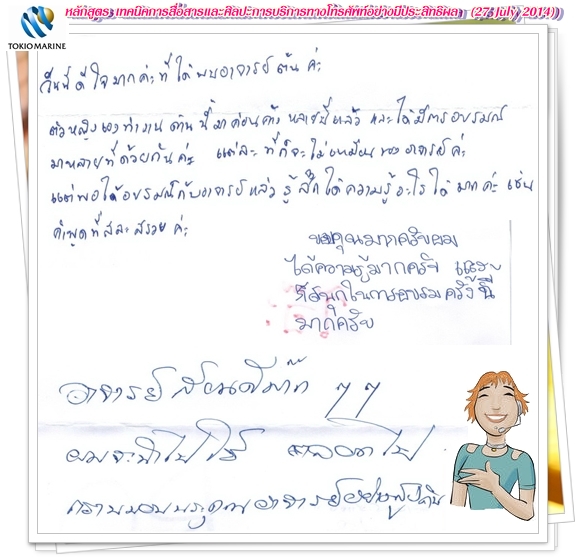 หลักสูตร เทคนิคการสื่อสารและศิลปะการบริการทางโทรศัพท์อย่างมีประสิทธิผล (27 July 2014)
TOKIO MARINE
วันนี้ดีใจมากค่ะที่ได้พบอาจารย์ต้น ค่ะ
ตัวหญิงเองทำงานด้านนี้มาค่อนค้าง หลายปีแล้ว และได้มีการอบรมณ์
มาหลายที่ด้วยกันค่ะ แต่ละ ที่ก็จะไม่เหมือน ของ อาจารย์ ค่ะ
แต่พอได้อบรมณ์กับอาจารย์แล้ว รู้สึกได้ความรู้อะไรได้ มาก ค่ะ เช่น
คำพูดที่สละสรวย ค่ะ
ขอบคุณมากครับผม
ได้ความรู้มากครับ และ
ก็สนุกในการอบรมครั้งนี้
มากครับ
อาจารย์ สอนดีมาก ๆ ๆ
ผมจะนำไปใช้ ตลอดไป
กราบขอบพระคุณอาจารย์